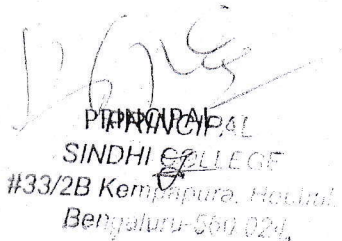 PRINCIPAL
SINDHI COLLEGE
#33/2B Kempapura, Hebbal
Bengaluru-560 024.